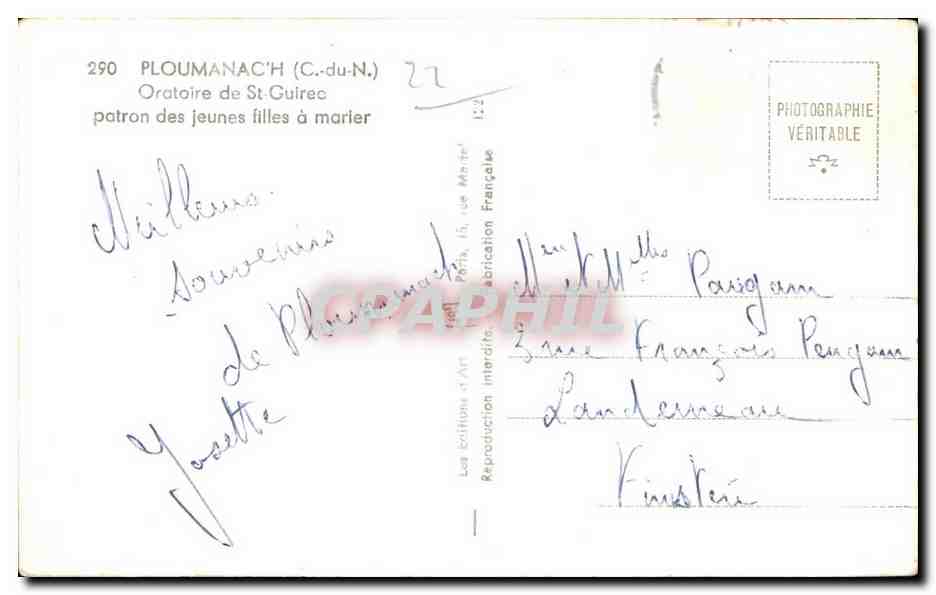 290 PLOUMANAC'H (C.-du-N.)
Oratoire de St-Guirec
patron des jeunes filles à marier
22
PHOTOGRAPHIE
VÉRITABLE
Meilleurs
Souvenirs
de Ploumanach
Josette
Les Editions d'Art Paris, 15, rue Martel
Reproduction interdite. Fabrication Française
CPAPHIL
et Mlles Paugam
3 rue François Pengam
Landerneau
Finistère